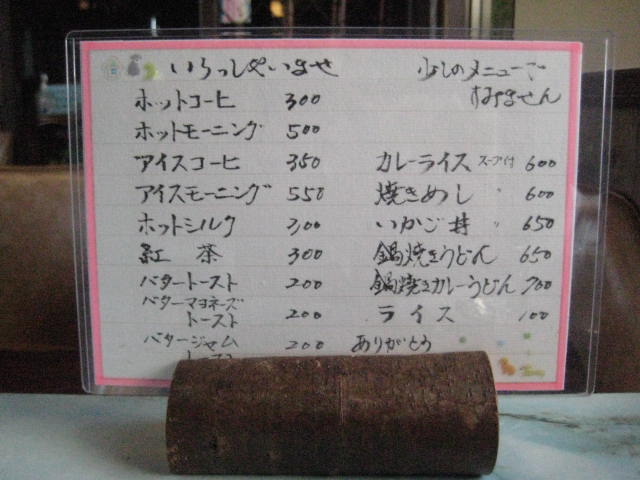 いらっしゃいませ
少しのメニューで
すみません
ホットコーヒ 300
ホットモーニング 500
アイスコーヒ 350
アイスモーニング 550
ホットミルク 300
紅茶 300
バタートースト 200
バターマヨネーズ
トースト 200
バタージャム
トースト 200
カレーライス スープ付 600
焼きめし 〃 600
いかご丼 〃 650
鍋焼きうどん 650
鍋焼きカレーうどん 700
ライス 100
ありがとう